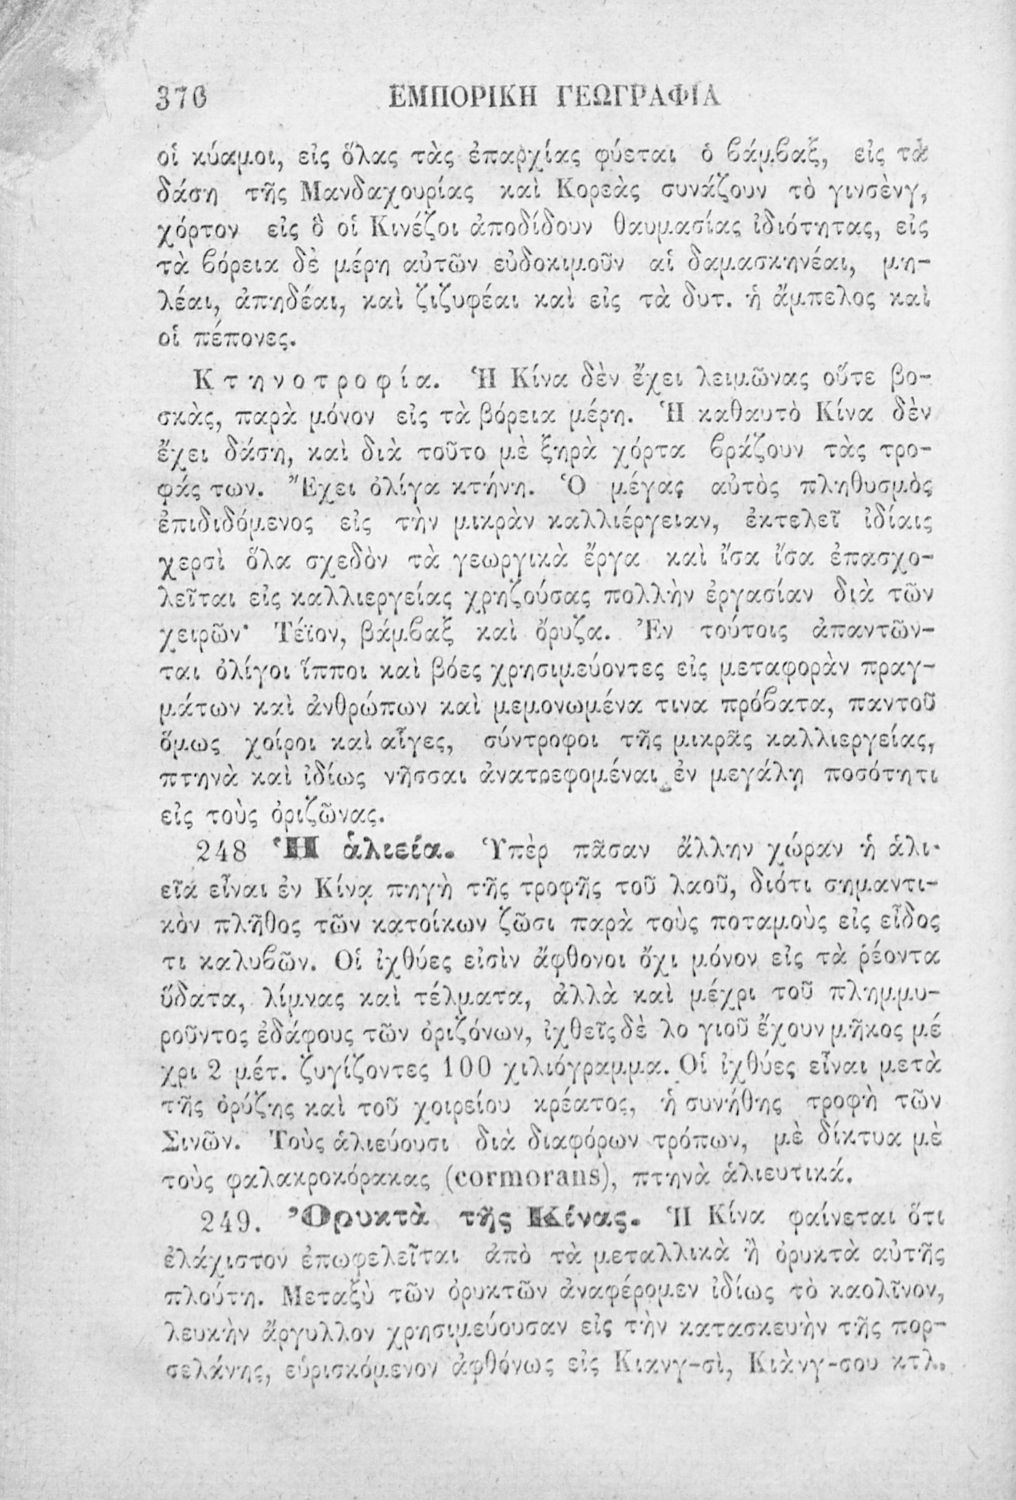 376 ΕΜΠΟΡΙΚΗ ΓΕΩΓΡΑΦΙΑ
οἱ κύαμοι, εἰς ὅλας τὰς ἐπαρχίας φύεται ὁ βάμβαξ, εἰς τὰ
δάση τῆς Μανδαχουρίας καὶ Κορεὰς συνάζουν τὸ γινσὲνγ,
χόρτον εἰς ὃ οἱ Κινέζοι ἀποδίδουν θαυμασίας ἰδιότητας, εἰς
τὰ βόρεια δὲ μέρη αὐτῶν εὐδοκιμοῦν αἱ δαμασκηνέαι, μη-
λέαι, ἀπηδέαι, καὶ ζιζυφέαι καὶ εἰς τὰ δυτ. ἡ ἄμπελος καὶ
οἱ πέπονες.
Κτηνοτροφία. Ἡ Κίνα δὲν ἔχει λειμῶνας οὔτε βο-
σκὰς, παρὰ μόνον εἰς τὰ βόρεια μέρη. Ἡ καθαυτὸ Κίνα δὲν
ἔχει δάση, καὶ διὰ τοῦτο μὲ ξηρὰ χόρτα βράζουν τὰς τρο-
φάς των. Ἔχει ὀλίγα κτήνη. Ὁ μέγας αὐτὸς πληθυσμὸς
ἐπιδιδόμενος εἰς τὴν μικρὰν καλλιέργειαν, ἐκτελεῖ ἰδίαις
χερσὶ ὅλα σχεδὸν τὰ γεωργικὰ ἔργα καὶ ἴσα ἴσα ἐπασχο-
λεῖται εἰς καλλιεργείας χρηζούσας πολλὴν ἐργασίαν διὰ τῶν
χειρῶν· Τέϊον, βάμβαξ καὶ ὄρυζα. Ἐν τούτοις ἀπαντῶν-
ται ὀλίγοι ἵπποι καὶ βόες χρησιμεύοντες εἰς μεταφορὰν πραγ-
μάτων καὶ ἀνθρώπων καὶ μεμονωμένα τινα πρόβατα, παντοῦ
ὅμως χοίροι καὶ αἶγες, σύντροφοι τῆς μικρᾶς καλλιεργείας,
πτηνὰ καὶ ἰδίως νῆσσαι ἀνατρεφομέναι ἐν μεγάλῃ ποσότητι
εἰς τοὺς ὀριζῶνας.
248 Ἡ ἁλιεία. Ὑπὲρ πᾶσαν ἄλλην χώραν ἡ ἁλι-
εῖα εἶναι ἐν Κίνᾳ πηγὴ τῆς τροφῆς τοῦ λαοῦ, διότι σημαντι-
κὸν πλῆθος τῶν κατοίκων ζῶσι παρὰ τοὺς ποταμοὺς εἰς εἶδος
τι καλυβῶν. Οἱ ἰχθύες εἰσὶν ἄφθονοι ὄχι μόνον εἰς τὰ ῥέοντα
ὕδατα, λίμνας καὶ τέλματα, ἀλλὰ καὶ μέχρι τοῦ πλημμυ-
ροῦντος ἐδάφους τῶν ὀριζόνων, ἰχθεῖς δὲ λο γιοῦ ἔχουν μῆκος μέ
χρι 2 μέτ. ζυγίζοντες 100 χιλιόγραμμα. Οἱ ἰχθύες εἶναι μετὰ
τῆς ὀρύζης καὶ τοῦ χοιρείου κρέατος, ἡ συνήθης τροφὴ τῶν
Σινῶν. Τοὺς ἁλιεύουσι διὰ διαφόρων τρόπων, μὲ δίκτυα μὲ
τοὺς φαλακροκόρακας (cormorans), πτηνὰ ἁλιευτικά.
249. Ὀρυκτὰ τῆς Κίνας. Ἡ Κίνα φαίνεται ὅτι
ἐλάχιστον ἐπωφελεῖται ἀπὸ τὰ μεταλλικὰ ἢ ὀρυκτὰ αὐτῆς
πλούτη. Μεταξὺ τῶν ὀρυκτῶν ἀναφέρομεν ἰδίως τὸ καολῖνον,
λευκὴν ἄργυλλον χρησιμεύουσαν εἰς τὴν κατασκευὴν τῆς πορ-
σελάνης, εὑρισκόμενον ἀφθόνως εἰς Κιανγ-σὶ, Κιὰνγ-σου κτλ.